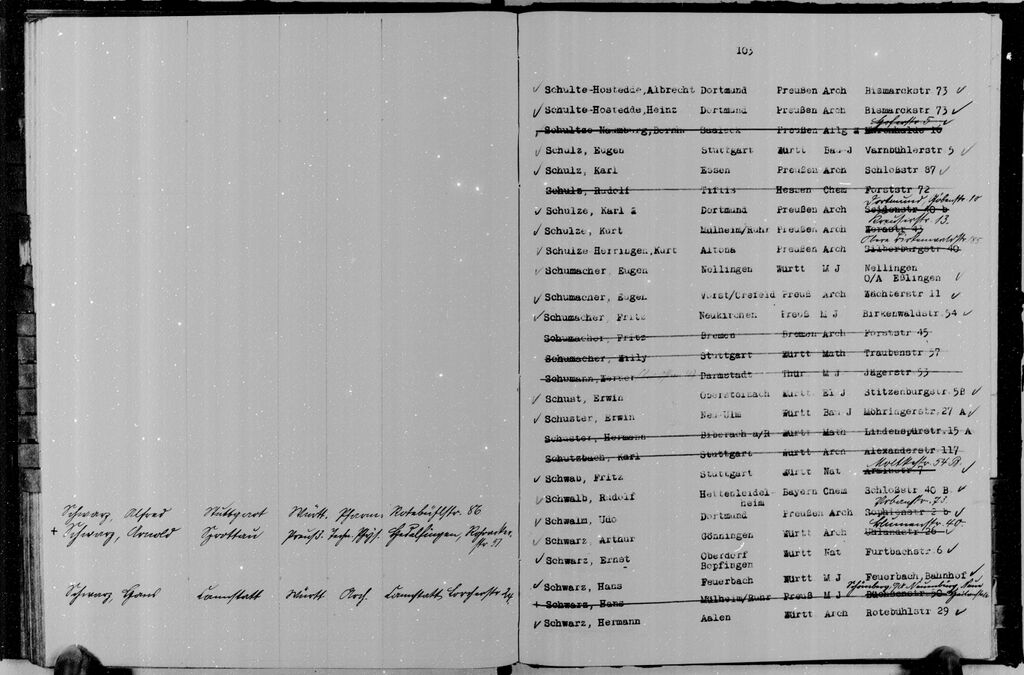 Schwarz, Alfred Stuttgart Württ. Pharm. Rotebühlstr. 86
+ Schwarz, Arnold Sprottau Preuß. Hedelfingen, Rohracker
str 51
Schwarz, Hans Cannstatt Württ Arch. Cannstatt, Lorcherstr
103
✓ Schulte-Hostedde,Albrecht Dortmund Preußen Arch Bismarckstr 73 ✓
✓ Schulte-Hostedde,Heinz Dortmund Preußen Arch Bismarckstr 73 ✓
Schultze Naumburg,Bernh Saaleck Preußen Allg 16
✓ Schulz, Eugen Stuttgart Württ Bau-J Varnbühlerstr 5 ✓
✓ Schulz, Karl Essen Preußen Arch Schloßstr 87 ✓
Schulz, Rudolf Tiflis Hessen Chem Forststr 72
Dortmund, Göbenstr 10
✓ Schulze, Karl Dortmund Preußen Arch Seidenstr 40 b
Kreuserstr. 13.
✓ Schulze, Kurt Mülheim/Ruhr Preußen Arch Werastr
Obere Birkenwaldstr
✓ Schulze Herringen,Kurt Altona Preußen Arch Silberburgstr 40
✓ Schumacher, Eugen Nellingen Württ M J Nellingen
O/A Eßlingen ✓
✓ Schumacher, Eugen Vorst/Crefeld Preuß Arch Wächterstr 11 ✓
✓ Schumacher, Fritz Neukirchen Preuß M J Birkenwaldstr 54 ✓
Schumacher, Fritz Bremen Bremen Arch Forststr 45
Schumacher, Willy Stuttgart Württ Math Traubenstr 57
Schumann,Werner Darmstadt Thür M J Jägerstr 53
✓ Schust, Erwin Oberstotnach Württ El J Stitzenburgstr 5B ✓
✓ Schuster, Erwin Neu-Ulm Württ Bau J Möhringerstr 27 A ✓
Schuster, Hermann Biberach a/R Württ Math Lindenspürstr 15 A
Schutzbach, Karl Stuttgart Württ Arch Alexanderstr 117
Moltkestr. 54 B.
✓ Schwab, Fritz Stuttgart Württ Nat ✓
✓ Schwalb, Rudolf Hettenleidel- Bayern Chem Schloßstr 40 B ✓
heim Urbanstr. 73.
✓ Schwalm, Udo Dortmund Preußen Arch Sophienstr 2 b ✓
Blumenstr 40
✓ Schwarz, Arthur Gönningen Württ Arch 26 ✓
✓ Schwarz, Ernst Oberdorf Württ Nat Furtbachstr 6 ✓
Bopfingen
✓ Schwarz, Hans Feuerbach Württ M J Feuerbach,Bahnhof ✓
+ Schwarz, Hans Mülheim/Ruhr Preuß M J Büchsenstr 50
✓ Schwarz, Hermann Aalen Württ Arch Rotebühlstr 29 ✓